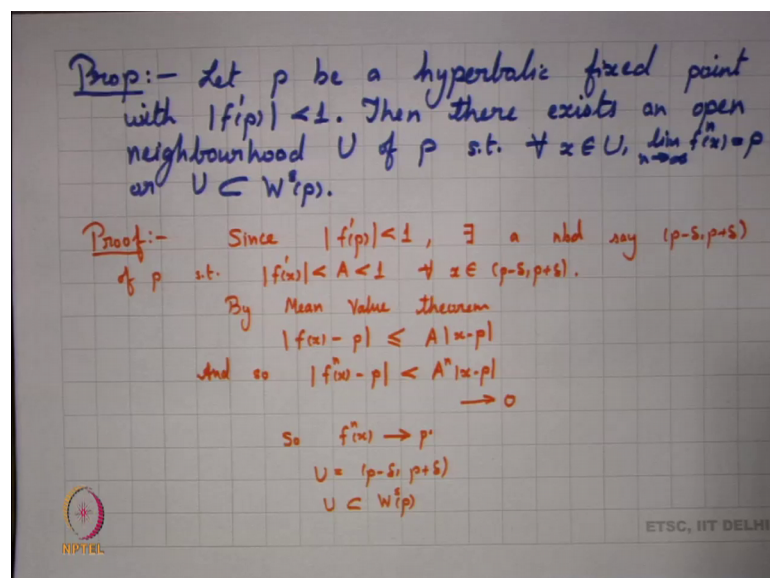 Prop:- Let p be a hyperbolic fixed point
with |f'(p)| < 1. Then there exists an open
neighbourhood U of p s.t. ∀ x ∈ U, lim_{n→∞} fⁿ(x) = p
or U ⊂ Wˢ(p).
Proof:- Since |f'(p)| < 1, ∃ a nbd say (p-δ, p+δ)
of p s.t. |f'(x)| < A < 1 ∀ x ∈ (p-δ, p+δ).
By Mean Value theorem
|f(x) - p| ≤ A |x-p|
And so |fⁿ(x) - p| < Aⁿ |x-p|
→ 0
So fⁿ(x) → p.
U = (p-δ, p+δ)
U ⊂ Wˢ(p)
NPTEL
ETSC, IIT DELHI